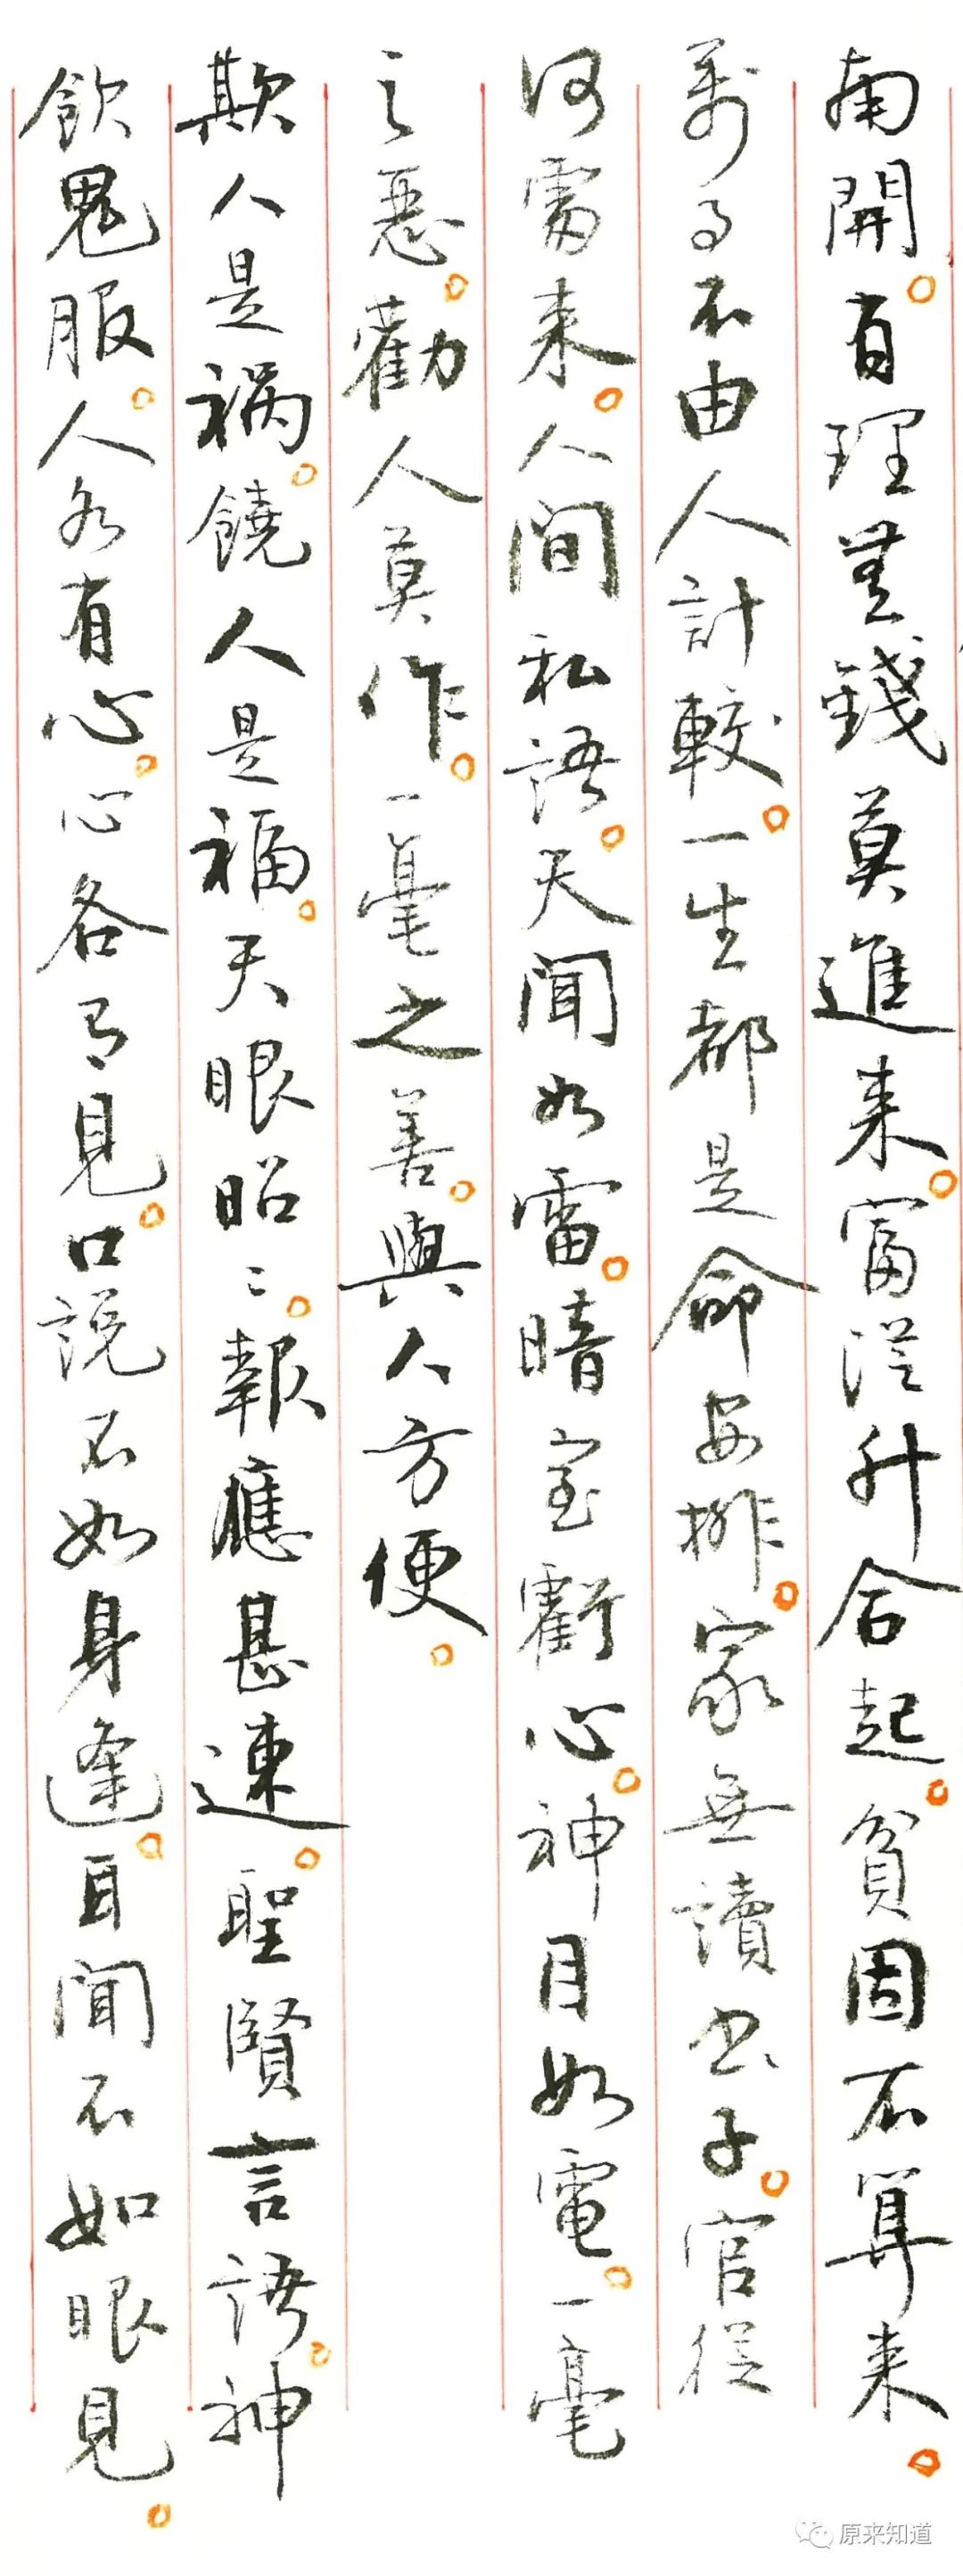 南開。有理無錢莫進来。富從升合起。貧因不算来。
萬事不由人計較。一生都是命安排。家無讀書子。官從
何處来。人間私語。天聞如雷。暗室虧心。神目如電。一毫
之惡。勸人莫作。一毫之善。與人方便。
欺人是禍。饒人是福。天眼昭昭。報應甚速。聖賢言語。神
欽鬼服。人各有心。心各有見。口説不如身逢。耳聞不如眼見。
原来知道